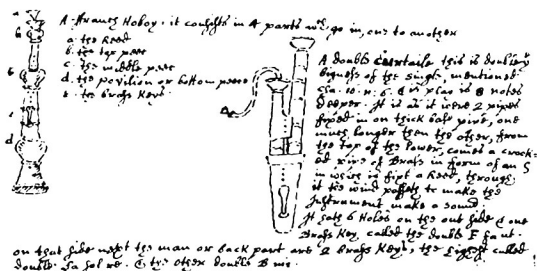 A ffrench Hoboy, it consists in 4 parts wch go in, one to another
a. the Reed
b. the top peece
c. the middle peece
d. the pavilion or bottom peece
e. the Brass Keys.
a
b
b
c
d
A double Curtaile this is double ye
bigness of the single, mentioned
cha. 16. n. 6. & is plaid 8 notes
deeper. It is as it were 2 pipes
fixed in on thick bass pipe, one
much longer then the other, from
the top of the lower, comes a crock-
ed pipe of Brass in form of an S
in which is fixt a Reed, through
it the wind passeth to make the
Instrument make a sound.
It hath 6 Holes on the out side & one
Brass Key called the double F faut.
on that side next the man or back part are 2 Brass Keys, the highest called
double La sol re. & the other double B mi.